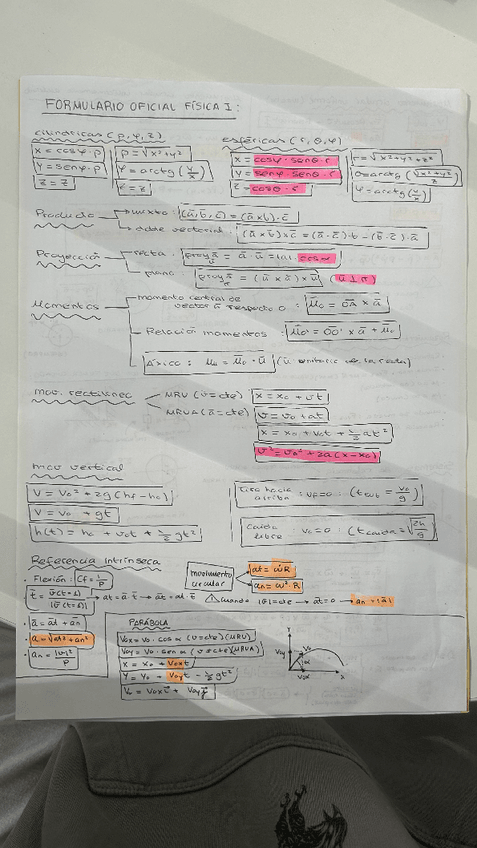 FORMULARIO OFICIAL FÍSICA I:
cilíndricas (ρ, φ, z)
x = cosφ · ρ
y = senφ · ρ
z = z
ρ = √x²+y²
φ = arctg (y/x)
z = z
esféricas (r, θ, φ)
x = cosφ · senθ · r
y = senφ · senθ · r
z = cosθ · r
r = √x²+y²+z²
θ = arctg (√x²+y²/z)
φ = arctg (y/x)
Producto
mixto: (ā, b̄, c̄) = (ā x b̄) · c̄
doble vectorial: (ā x b̄) x c̄ = (ā · c̄) · b̄ - (b̄ · c̄) · ā
Proyección
recta: proy ā = ā · ū = |ā| · cosα
plano: proy ā = (ū x ā) x ū (ū ⊥ π)
Momentos
momento central de vector ā respecto O: M̄o = OA x ā
Relación momentos: M̄o' = O'O x ā + M̄o
Áxico: Mu = M̄o · ū (ū unitario de la recta)
mov. rectilíneo
MRU (v = cte) x = xo + vt
MRUA (ā = cte) v = vo + at
x = xo + vot + ½ at²
v² = vo² + 2a (x - xo)
mov vertical
v = vo² + 2g (hf - ho)
v = vo + gt
h(t) = ho + vot + ½ gt²
tiro hacia arriba: vf = 0: (tsub = vo/g)
Caída libre: vo = 0: (tcaída = √2h/g)
Referencia Intrínseca
· Flexión: Cf = 1/ρ
t̄ = v̄(t=1)/|v̄(t=1)| → at = ā · t̄ → āt = at · t̄
⚠ Cuando |v̄| = cte → āt = 0 → an = |ā|
movimiento circular
at = ω̇ · R
an = ω² · R
· ā = āt + ān
· a = √at² + an²
· an = |v|²/ρ
PARÁBOLA
Vox = Vo · cosα (v = cte) (MRU)
Voy = Vo · senα (v ≠ cte) (MRUA)
x = xo + Voxt
Y = Yo + Voyt - ½ gt²
V̄o = Vox ī + Voy j̄
y
Voy
Vo
α
Vox
x